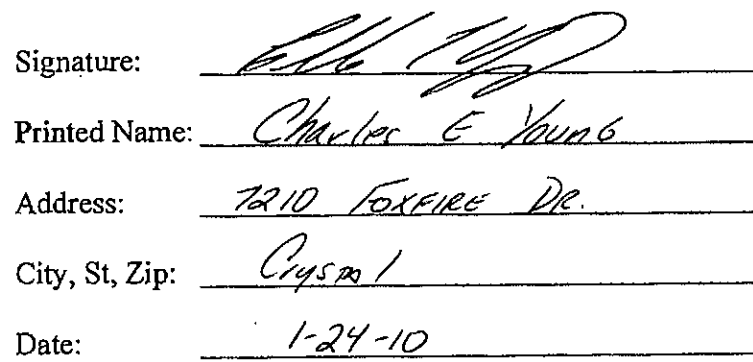 Signature:
Printed Name: Charles E Young
Address: 7210 FOXFIRE DR.
City, St, Zip: Crystal
Date: 1-24-10